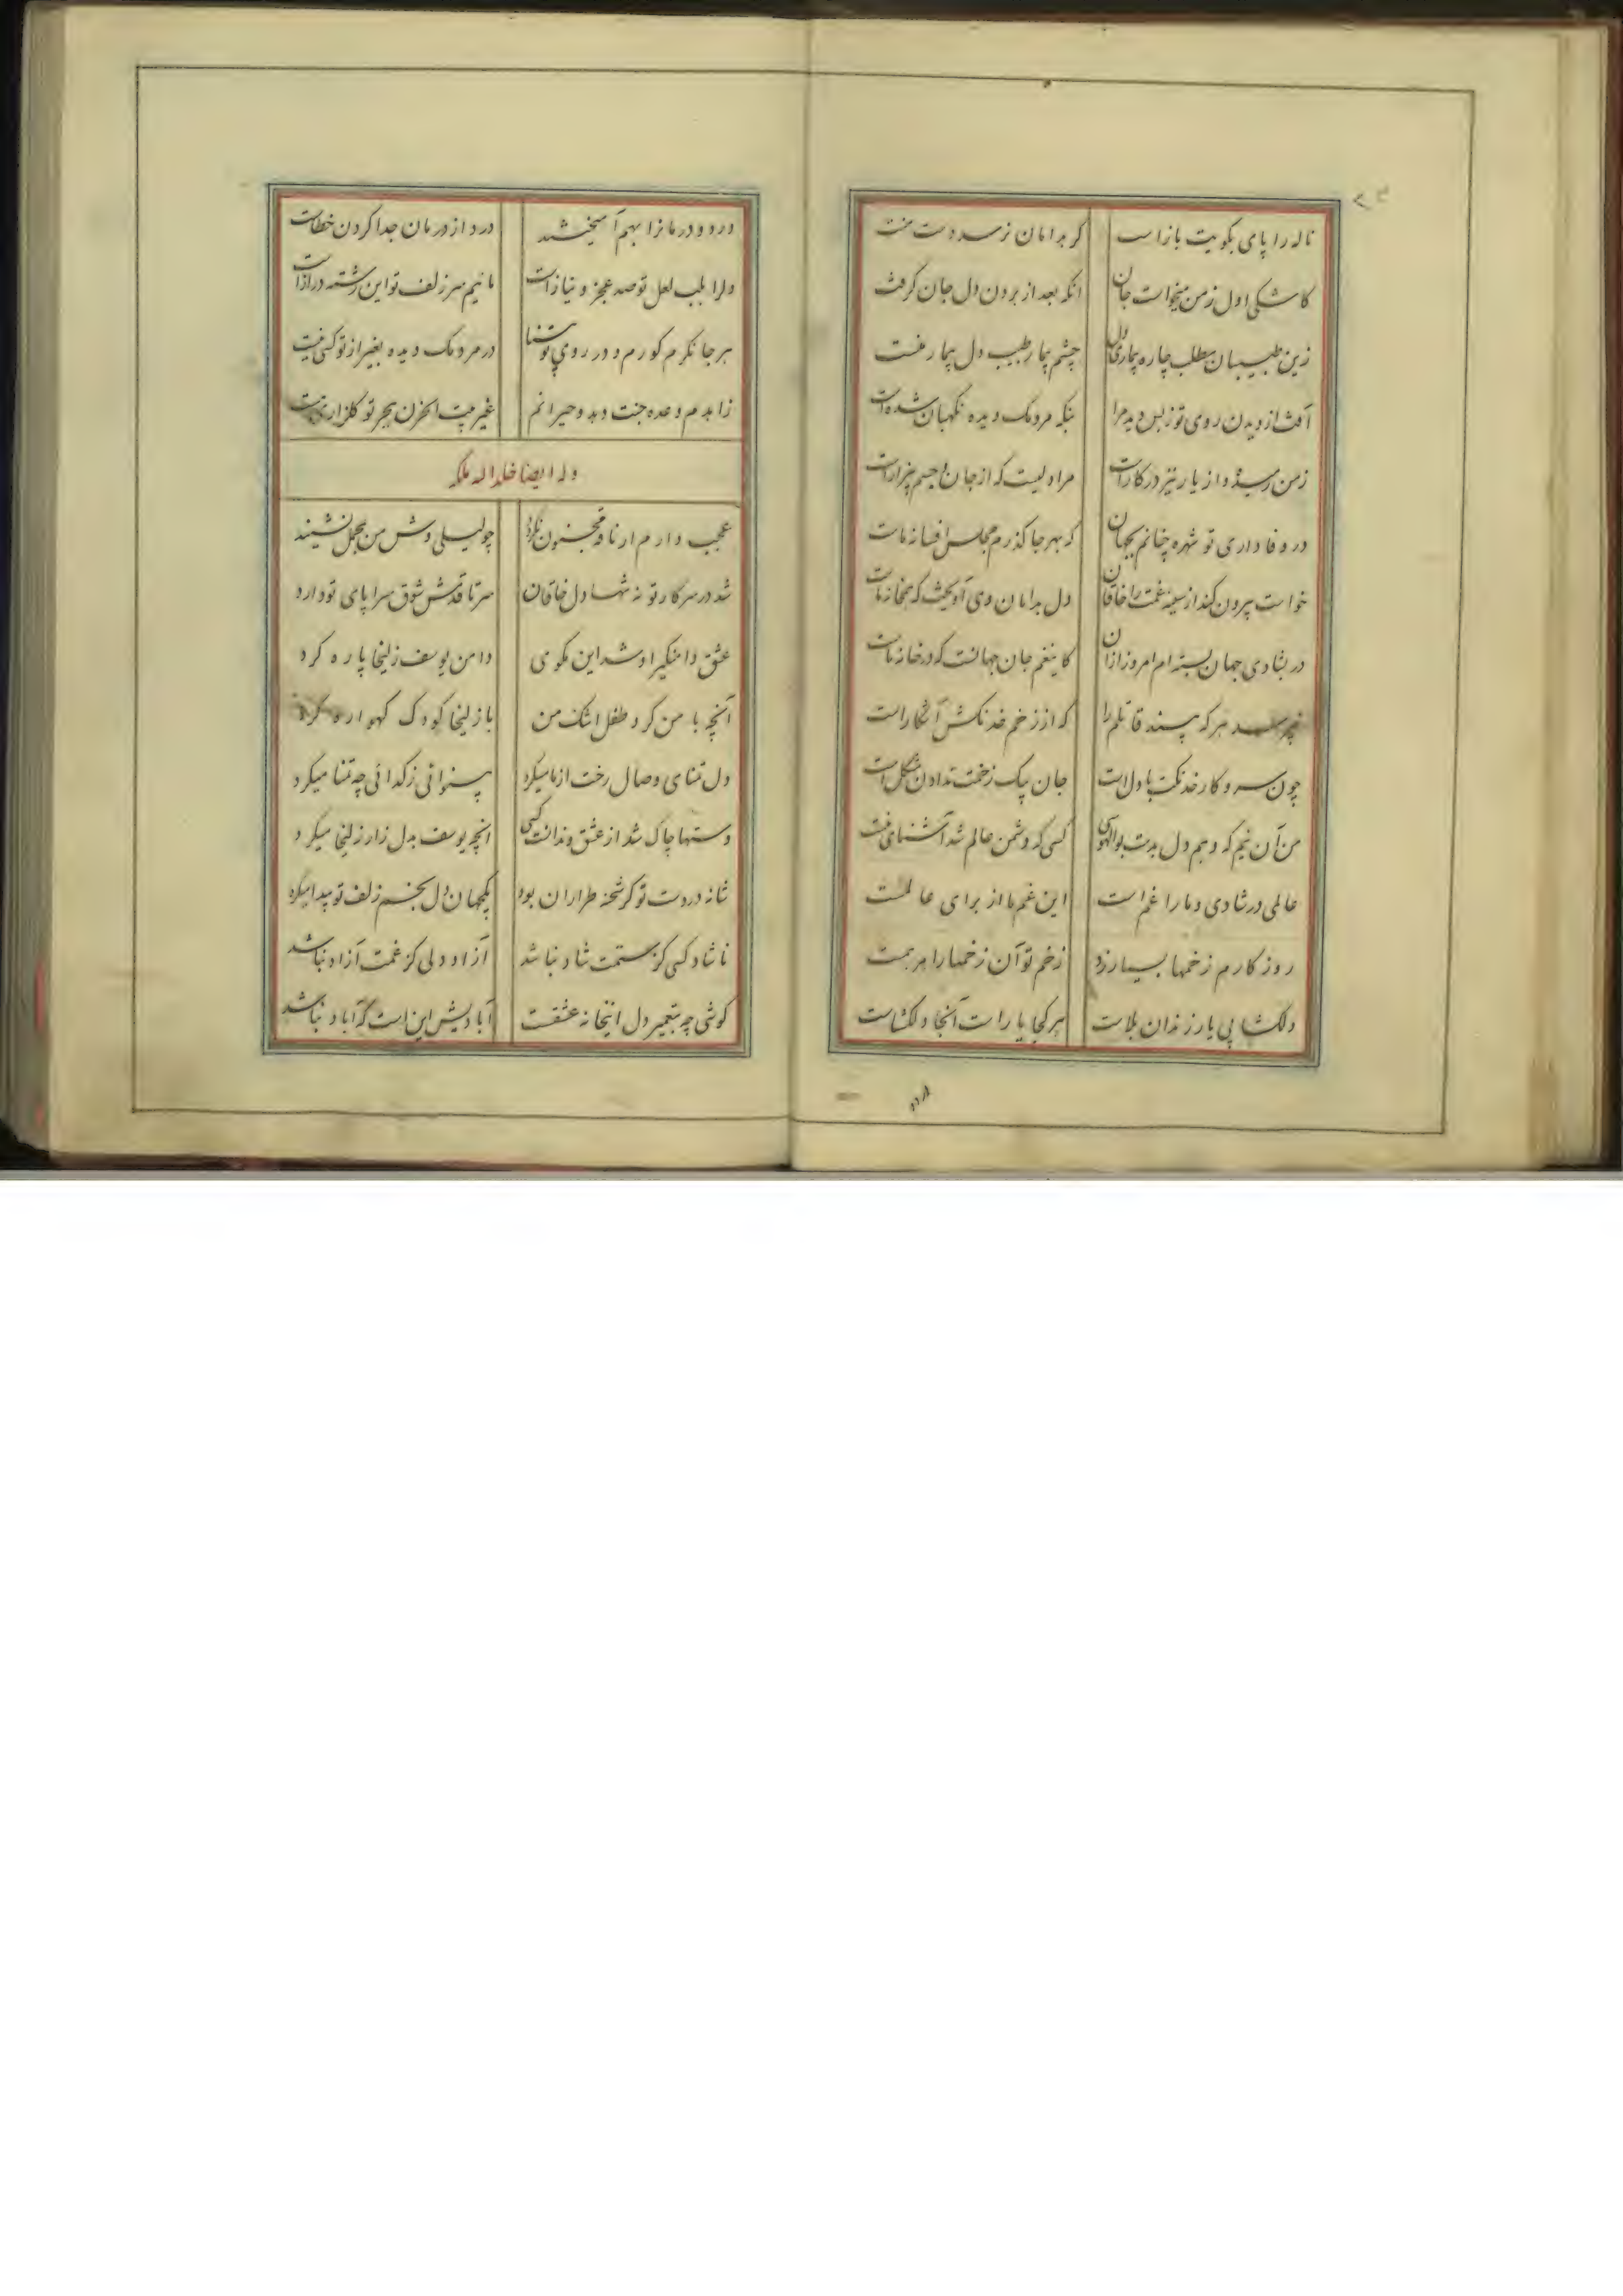 ۲۳
ناله را پای بکویت بازاست کر بدامان نرسد دست منت
کاشکی اول ز من میخواست جان انکه بعد از بردن دل جان کرفت
زین طبیبان مطلب چاره بیماری دل چشم بیمار طبیب دل بیمار منست
آفت از دیدن روی تو ز بس دید مرا بنکه مردمک دیده نکهبان شده است
ز من رمیده و از یار نیز در کار است مرا دلیست که از جان و جسم بیزار است
در وفاداری تو شهره چنانم بجهان که بهر جا کذرم مجلس افسانه ماست
خواست بیرون کند از سینه غمت را خاقان دل بدامان وی آویخت که همخانه ماست
در بشادی جهان بسته ام امروز از ان کاینغم جان جهانست که در خانه ماست
نپرسد هر که بیند قاتلم را که از زخم خدنکش آشکار است
چون سر و کار خدنکت با دل است جان بپیک زخمت ندادن مشکل است
من آن نیم که دهم دل بدست بوالهوسی کسی که دشمن عالم شد آشنای منست
عالمی در شادی و ما را غم است این غم ما از برای عالمست
روزکارم زخمها بسیار زد زخم تو آن زخمها را مرهمست
دلکشا بی یار زندان بلاست هر کجا یار است آنجا دلکشاست
درد
درد و درمانرا بهم آمیختند درد از درمان جدا کردن خطاست
دلرا بلب لعل تو صد عجز و نیاز است مائیم سر زلف تو این رشته دراز است
هر جا نکرم کورم و در روی تو بینا در مردمک دیده بغیر از تو کسی نیست
زاهدم وعده جنت دهد و حیرانم غیر بیت الحزن هجر تو کلزاری نیست
وله ایضا خلد الله ملکه
عجب دارم ار ناقه مجنون نکردد چو لیلی وش من بمحمل نشیند
شد در سر کار تو نه تنها دل خاقان سر تا قدمش شوق سراپای تو دارد
عشق دامنکیر او شد این مکوی دامن یوسف زلیخا پاره کرد
آنچه با من کرد طفل اشک من با زلیخا کودک کهواره کرد
دل تمنای وصال رخت از ما میکرد بینوائی ز کدائی چه تمنا میکرد
دستها چاک شد از عشق و ندانست کسی انچه یوسف بدل زار زلیخا میکرد
شانه در دست تو کر شحنه طراران بود یکجهان دل بخم زلف تو پیدا میکرد
ناشاد کسی کز ستمت شاد نباشد آزاد دلی کز غمت آزاد نباشد
کوشی چه بتعمیر دل اینخانه عشقست آبادیش این است که آباد نباشد